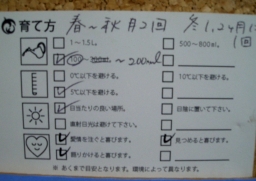 育て方 春~秋月2回 冬1,2ヶ月に1回
1~1.5L. 500~800ml.
100~ ~200ml
0℃以下を避ける。 10℃以下を避ける。
5℃以下を避ける。
日当たりの良い場所。 日陰に置いて下さい。
直射日光は避けて下さい。
愛情を注ぐと喜びます。 見つめると喜びます。
語りかけると喜びます。
※ あくまで目安となります。環境によって異なります。